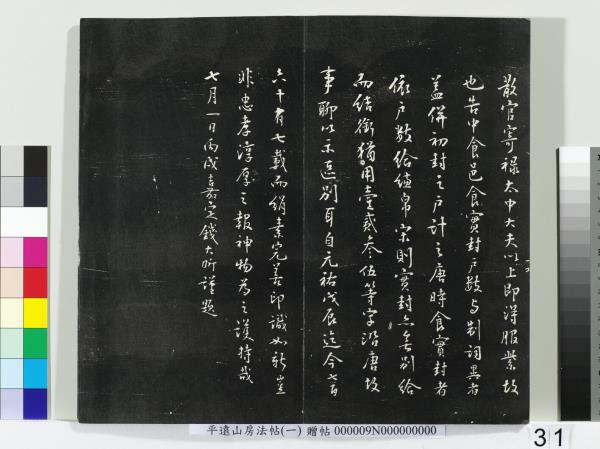 散官寄祿太中大夫以上即得服紫故
也告中食邑食實封戶數與制詞異者
蓋併初封之戶計之唐時食實封者
依戶數給縑帛宋則實封亦無別給
而結銜猶用壹貳叁伍等字沿唐故
事聊以示區別耳自元祐戊辰迄今七百
六十有七載而絹素完善印識如新豈
非忠孝淳厚之報神物為之護持哉
七月一日丙戌嘉定錢大昕謹題
平遠山房法帖(一) 贈帖 000009N000000000
31